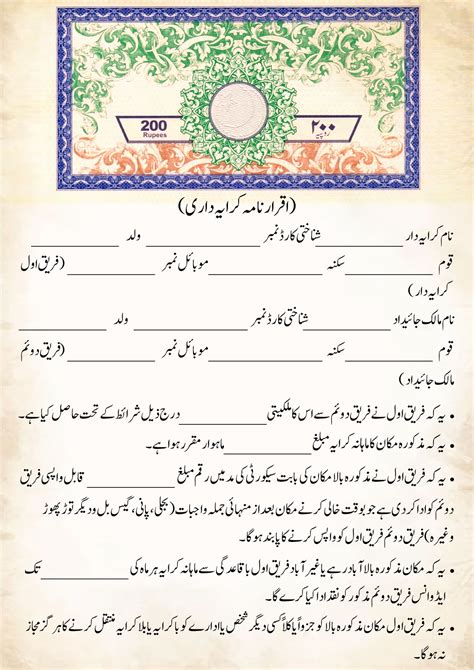 200 ۲۰۰
Rupees روپیہ
(اقرار نامہ کرایہ داری)
نام کرایہ دار ____________ شناختی کارڈ نمبر ____________ ولد ____________
قوم ____________ سکنہ ____________ موبائل نمبر ____________ (فریق اول
کرایہ دار)
نام مالک جائیداد ____________ شناختی کارڈ نمبر ____________ ولد ____________
قوم ____________ سکنہ ____________ موبائل نمبر ____________ (فریق دوئم
مالک جائیداد)
• یہ کہ فریق اول نے فریق دوئم سے اس کا ملکیتی ____________ درج ذیل شرائط کے تحت حاصل کیا ہے۔
• یہ کہ مذکورہ مکان کا ماہانہ کرایہ مبلغ ____________ ماہوار مقرر ہوا ہے۔
• یہ کہ فریق اول نے مذکورہ بالا مکان کی بابت سیکورٹی کی مد میں رقم مبلغ ____________ قابل واپسی فریق
دوئم کو ادا کر دی ہے جو بوقت خالی کرنے مکان بعد از منہائی جملہ واجبات (بجلی، پانی، گیس بل و دیگر توڑ پھوڑ
وغیرہ) فریق دوئم فریق اول کو واپس کرنے کا پابند ہوگا۔
• یہ کہ مکان مذکورہ بالا آباد رہے یا غیر آباد فریق اول باقاعدگی سے ماہانہ کرایہ ہر ماہ کی ____________ تک
ایڈوانس فریق دوئم کو نقد ادا کیا کرے گا۔
• یہ کہ فریق اول مکان مذکورہ بالا کو جزواً یا کلاً کسی دیگر شخص یا ادارے کو با کرایہ یا بلا کرایہ منتقل کرنے کا ہرگز مجاز
نہ ہوگا۔